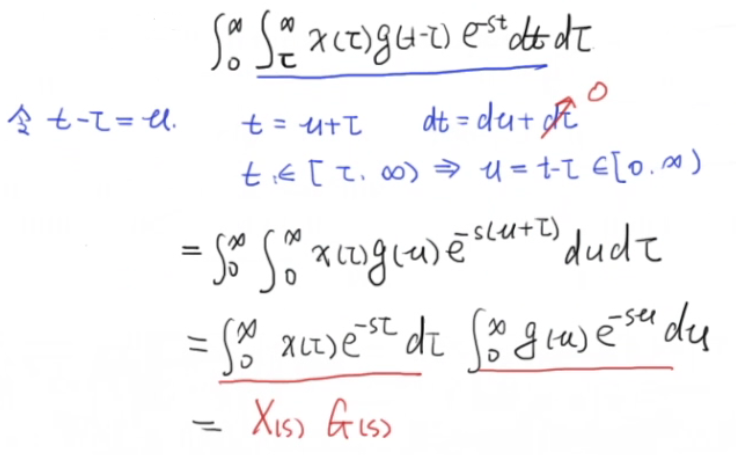 ∫₀^∞ ∫_τ^∞ x(τ)g(t-τ) e^{-st} dt dτ
令 t-τ=u. t = u+τ dt = du+dτ 0
t ∈ [τ, ∞) ⇒ u = t-τ ∈ [0, ∞)
= ∫₀^∞ ∫₀^∞ x(τ)g(u) e^{-s(u+τ)} du dτ
= ∫₀^∞ x(τ) e^{-sτ} dτ ∫₀^∞ g(u) e^{-su} du
= X(s) G(s)